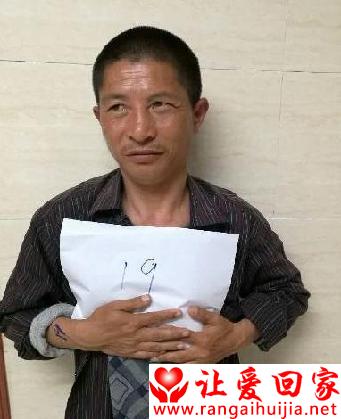 19
让爱回家
www.rangaihuijia.net